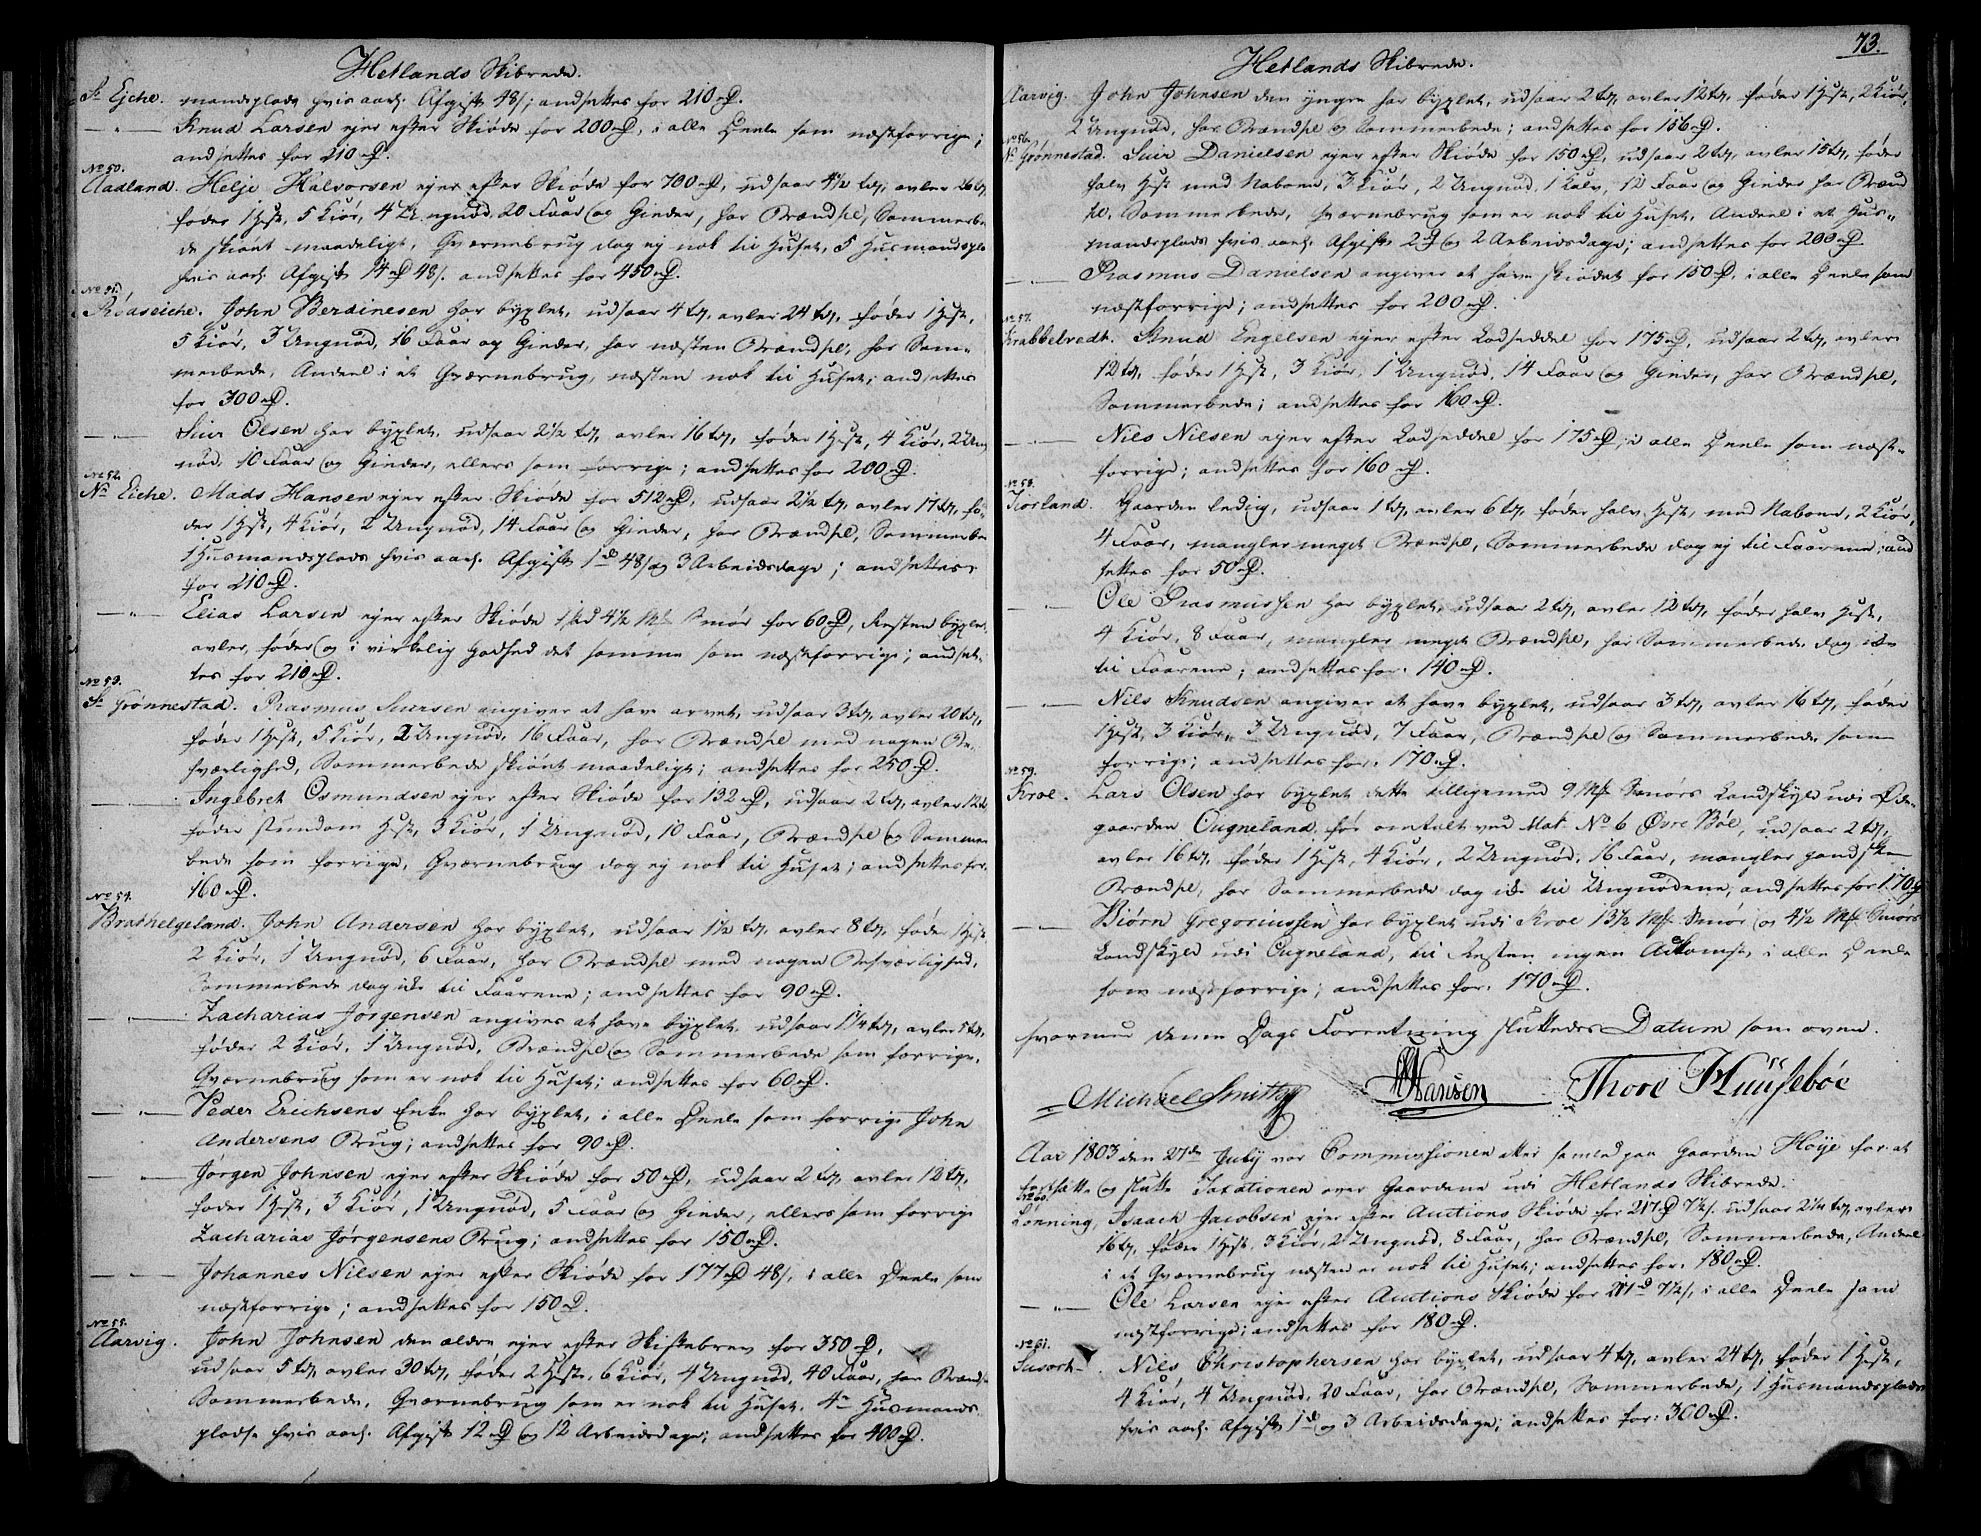 Hetlands Skibrede.
Sr Ejche. mandsplads hvis aarl. Afgift 48 s; andsættes for 210 rD.
—"— Knud Larsen ejer efter Skiøde for 200 rD, i alle Deele som næstforrige;
andsættes for 210 rD.
No 50.
Aadland. Helje Halvorsen ejer efter Skiøde for 700 rD, udsaar 4 1/2 tdr, avler 26 tdr
føder 1 Hest, 5 Kiør, 4 Ungnød, 20 Faar og Gieder, har Brændsel, Sommerbe-
de skiønt maadeligt, Qværnebrug dog ej nok til Huset, 5 Husmandspl.
hvis aarl. Afgift 14 rD 48 s. andsættes for 450 rD.
No 51.
Röaseiche. John Berdinesen har byxlet, udsaar 4 tdr, avler 24 tdr, føder 1 Hest,
5 Kiør, 3 Ungnød, 16 Faar og Gieder, har næsten Brændsel, har Som-
merbede, Andeel i et Qværnebrug, næsten nok til Huset; andsættes
for 300 rD.
—"— Siur Olsen har byxlet, udsaar 2 1/2 tdr, avler 16 tdr, føder 1 Hest, 4 Kiør, 2 Ung
nød, 10 Faar og Gieder, ellers som forrige; andsættes for 200 rD.
No 52.
Nr Eiche. Mads Hansen ejer efter Skiøde for 512 rD, udsaar 2 1/2 tdr, avler 17 tdr, fø-
der 1 Hest, 4 Kiør, 2 Ungnød, 14 Faar og Gieder, har Brændsel, Sommerbe
1 Husmandsplads hvis aarl. Afgift 1 rd 48 s og 3 Arbeidsdage; andsættes
for 210 rD.
—"— Elias Larsen ejer efter Skiøde 4 1/2 Mrk Smør for 60 rD, Resten byxlet,
avler, føder og i virkelig Godhed det samme som næstforrige; andsæt-
tes for 210 rD.
No 53.
Sr Grønnestad. Rasmus Siursen angiver at have arvet, udsaar 3 tdr, avler 20 tdr,
føder 1 Hest, 5 Kiør, 2 Ungnød, 16 Faar, har Brændsel med nogen Be-
sværlighed, Sommerbede skiønt maadeligt; andsættes for 250 rD.
—"— Ingebret Osmundsen ejer efter Skiøde for 132 rD, udsaar 2 tdr, avler 12 td
føder stundom Hest, 3 Kiør, 1 Ungnød, 10 Faar, Brændsel og Sommer
bede som forrige, Qværnebrug dog ej nok til Huset; andsættes for
160 rD.
No 54.
Brathelgeland. John Andersen har byxlet, udsaar 1 1/2 tdr, avler 8 tdr, føder 1 Hest
2 Kiør, 1 Ungnød, 6 Faar, har Brændsel med nogen Besværlighed,
Sommerbede dog ikke til Faarene; andsættes for 90 rD.
—"— Zacharias Jørgensen angives at have byxlet, udsaar 1 1/4 tdr, avler 5 tdr,
føder 2 Kiør, 1 Ungnød, Brændsel og Sommerbede som forrige,
Qværnebrug som er nok til Huset; andsættes for 60 rD.
—"— Peder Erichsens Enke har byxlet, i alle Deele som forrige John
Andersens Brug; andsættes for 90 rD.
—"— Jørgen Johnsen ejer efter Skiøde for 50 rD, udsaar 2 tdr, avler 12 tdr,
føder 1 Hest, 3 Kiør, 1 Ungnød, 5 Faar og Gieder, ellers som forrige
Zacharias Jørgensens Brug; andsættes for 150 rD.
—"— Johannes Nilsen ejer efter Skiøde for 177 rD 48 s, i alle Deele som
næstforrige; andsættes for 150 rD.
No 55.
Aarvig. John Johnsen den ældre ejer efter Skiftebrev for 350 rD,
udsaar 5 tdr, avler 30 tdr, føder 2 Heste, 6 Kiør, 4 Ungnød, 40 Faar, har Brænds
Sommerbede, Qværnebrug som er nok til Huset, 4 Husmands
pladse hvis aarl. Afgift 12 rD og 12 Arbeidsdage; andsættes for 400 rD.
73.
Hetlands Skibrede.
Aarvig. John Johnsen den yngre har byxlet, udsaar 2 tdr, avler 12 tdr, føder 1 Hest, 2 Kiør,
2 Ungnød, har Brændsel og Sommerbede; andsættes for 156 rD.
No 56.
Nr Grønnestad. Siur Danielsen ejer efter Skiøde for 150 rD, udsaar 2 tdr, avler 15 tdr, føder
halv Hest med Naboen, 3 Kiør, 2 Ungnød, 1 Kalv, 12 Faar og Gieder har Brænd
sel, Sommerbede, Qværnebrug som er nok til Huset, Andeel i et Hus-
mandsplads hvis aarl. Afgift 2 rD og 2 Arbeidsdage; andsættes for 200 rD
—"— Rasmus Danielsen angiver at have skiødet for 150 rD, i alle Deele som
næstforrige; andsættes for 200 rD.
No 57.
Krabbelvedt. Knud Engelsen ejer efter Lodseddel for 175 rD, udsaar 2 tdr, avler
12 tdr, føder 1 Hest, 3 Kiør, 1 Ungnød, 14 Faar og Gieder, har Brændsel,
Sommerbede; andsættes for 160 rD.
—"— Nils Nilsen ejer efter Lodseddel for 175 rD, i alle Deele som næst-
forrige; andsættes for 160 rD.
No 58.
Kiorland. Gaarden ledig, udsaar 1 tdr, avler 6 tdr, føder halv Hest, med Naboen, 2 Kiør,
4 Faar, mangler meget Brændsel, Sommerbede dog ej til Faarene; and
sættes for 50 rD.
—"— Ole Rasmussen har byxlet, udsaar 2 tdr, avler 12 tdr, føder halv Hest,
4 Kiør, 8 Faar, mangler meget Brændsel, har Sommerbede dog ikke
til Faarene; andsættes for 140 rD.
—"— Nils Knudsen angiver at have byxlet, udsaar 3 tdr, avler 16 tdr, føder
1 Hest, 3 Kiør, 3 Ungnød, 7 Faar, Brændsel og Sommerbede som
forrige; andsættes for 170 rD.
No 59.
Kroe. Lars Olsen har byxlet dette tilligemed 9 Mrk Smørs Landskyld udi Øde-
gaarden Ougneland, før omtalt ved Mat. No 6 Øvre Bøe, udsaar 2 tdr,
avler 16 tdr, føder 1 Hest, 4 Kiør, 2 Ungnød, 16 Faar, mangler gandske
Brændsel, har Sommerbede dog ikke til Ungnødene, andsættes for 170 rD
—"— Biørn Gregoriussen har byxlet udi Kroe 13 1/2 Mrk Smør og 4 1/2 Mrk Smørs
Landskyld udi Ougneland, til Resten ingen Adkomst, i alle Deele
som næstforrige; andsættes for 170 rD.
hvormed denne Dags Forretning sluttedes Datum som oven.
Michael Smith HHansen Thore Huusebøe
Aar 1803 den 27de July var Commissionen atter samlet paa Gaarden Høye for at
fortsætte og slutte Taxationen over Gaardene udi Hetlands Skibrede.
No 60.
Lønning, Isaach Jacobsen ejer efter Auctions Skiøde for 217 rD 7 1/2 s. udsaar 2 1/4 tdr, avler
16 tdr, føder 1 Hest, 3 Kiør, 2 Ungnød, 8 Faar, har Brændsel, Sommerbede, Andeel
i et Qværnebrug næsten er nok til Huset; andsættes for 180 rD.
—"— Ole Larsen ejer efter Auctions Skiøde for 217 rd 7 1/2 s, i alle Deele som
næstforrige; andsættes for 180 rD.
No 61.
Susort. Nils Christophersen har byxlet, udsaar 4 tdr, avler 24 tdr, føder 1 Hest,
4 Kiør, 4 Ungnød, 20 Faar, har Brændsel, Sommerbede, 1 Husmandsplads
hvis aarl. Afgift 1 rd og 3 Arbeidsdage; andsættes for 300 rD.